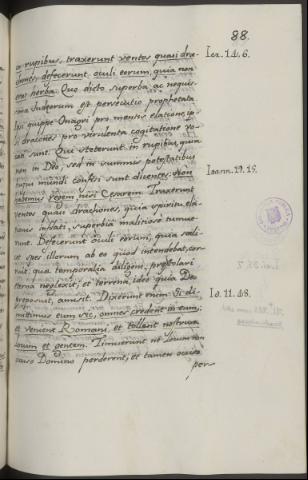 88.
in rupibus, traxerunt ventos quasi dra- Ier. 14. 6.
cones, defecerunt oculi eorum, quia non
erat herba. Quo dicto superba, ac nequis-
sima Judæorum est persecutio prophetata.
Ipsi quippe Onagri pro mentis elatione, ip-
si dracones pro virulenta cogitatione vo-
cati sunt. Qui steterunt in rupibus, quia
non in Deo, sed in summis potestatibus
hujus mundi confisi sunt dicentes: Non Ioann. 19. 15.
habemus regem nisi Cesarem. Traxerunt
ventos quasi dracones, quia spiritu ela-
tionis inflati, superbia malitiosa tumue-
runt. Defecerunt oculi eorum, quia scili-
cet spes illorum ab eo quod intendebat, cor-
ruit, quia temporalia diligens, præstolari
æterna neglexit; et terrena, ideo quia Deo
preposuit, amisit. Dixerunt enim: Si di- Io. 11. 48.
mittimus eum sic, omnes credent in eum;
et venient Romani, et tollent nostrum
locum et gentem. Timuerunt ne locum non
occiso Domino perderent; et tamen occiso
per-